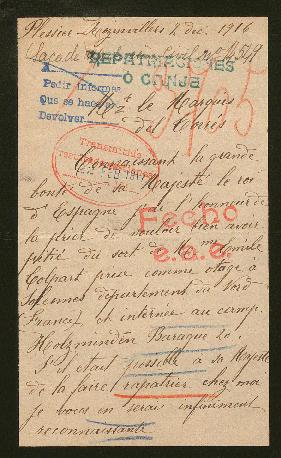 Plessier Rozainvillers 2 dec. 1916
REPATRIACIONES
O CANJE
A
Pedir informes
Que se hace
Devolver
Mr. le Marquis
Connaissant la grande
bonté de sa Majesté le roi
d'Espagne j'ai l'honneur de
la prier de vouloir bien avoir
pitié du sort de Mme
Colpart prise comme otage à
Solesmes département du Nord
(France) et internée au camp
Holzminden Baraque 20
S'il était possible à sa Majesté
de la faire rapatrier chez moi
je vous en serais infiniment
reconnaissante
Fecho
e.a.e.